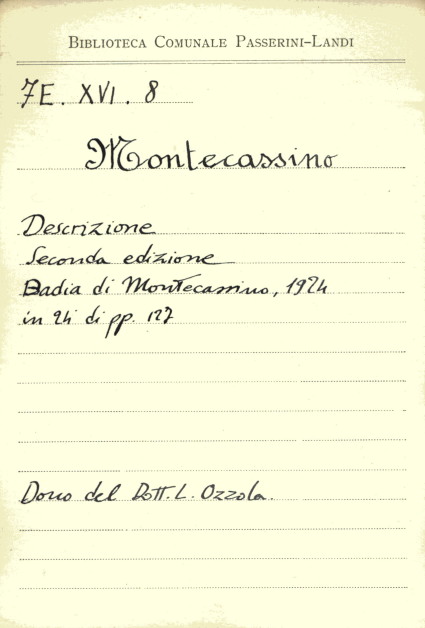 BIBLIOTECA COMUNALE PASSERINI-LANDI
7E. XVI. 8
Montecassino
Descrizione
Seconda edizione
Badia di Montecassino, 1924
in 24 di pp. 127
Dono del Dott. L. Ozzola.